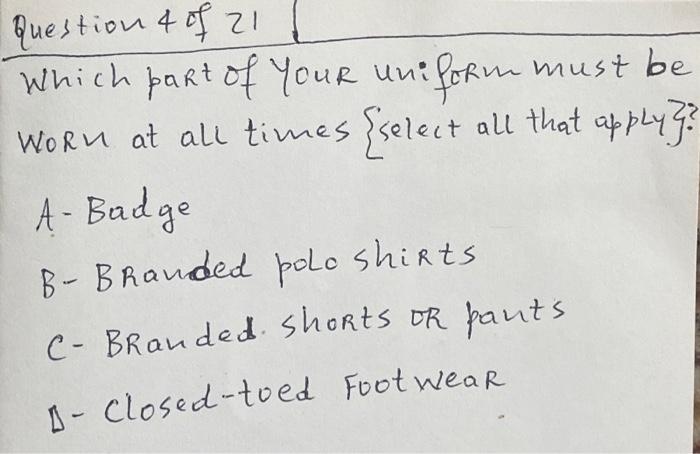 Question 4 of 21
Which part of YOUR uniform must be
WORN at all times {select all that apply}?
A - Badge
B - BRanded polo shiRts
C - BRanded. shoRts OR pants
D - Closed-toed FootweaR